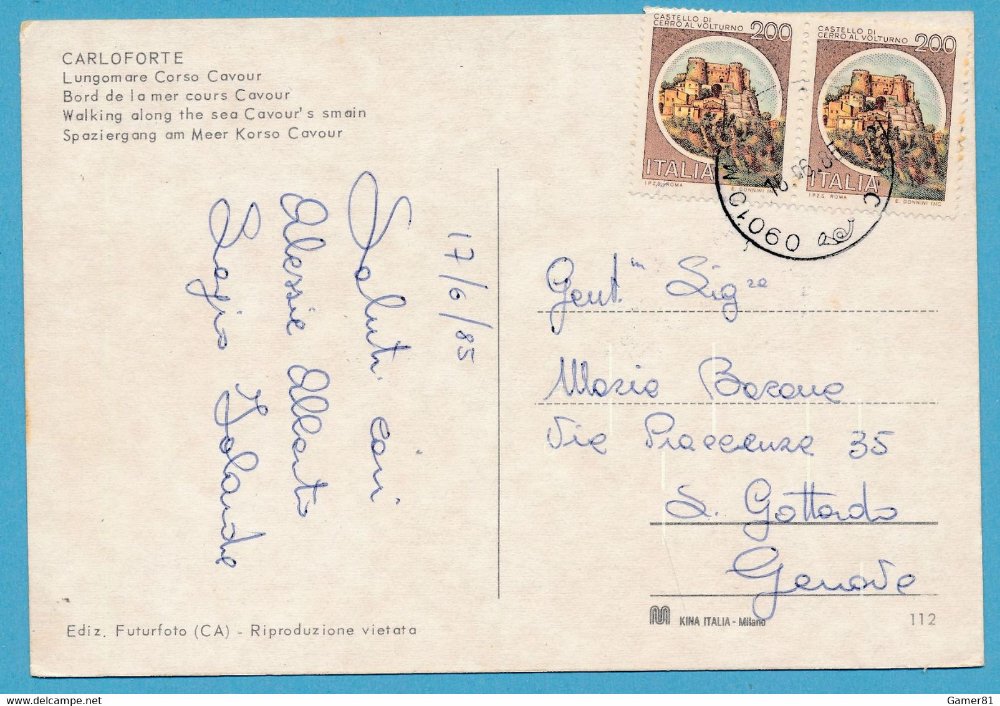 CARLOFORTE
Lungomare Corso Cavour
Bord de la mer cours Cavour
Walking along the sea Cavour's smain
Spaziergang am Meer Korso Cavour
CASTELLO DI
CERRO AL VOLTURNO 200
ITALIA
I.P.Z.S. ROMA E. DONNINI INC.
CASTELLO DI
CERRO AL VOLTURNO 200
ITALIA
I.P.Z.S. ROMA E. DONNINI INC.
09010
17/6/85
Saluti cari
Alessie Alberto
Sergio Jolanda
Gent.m Sig.ra
Maria
Via Piacenza 35
S. Gottardo
Genova
Ediz. Futurfoto (CA) - Riproduzione vietata
KINA ITALIA - Milano
112
Gamer81